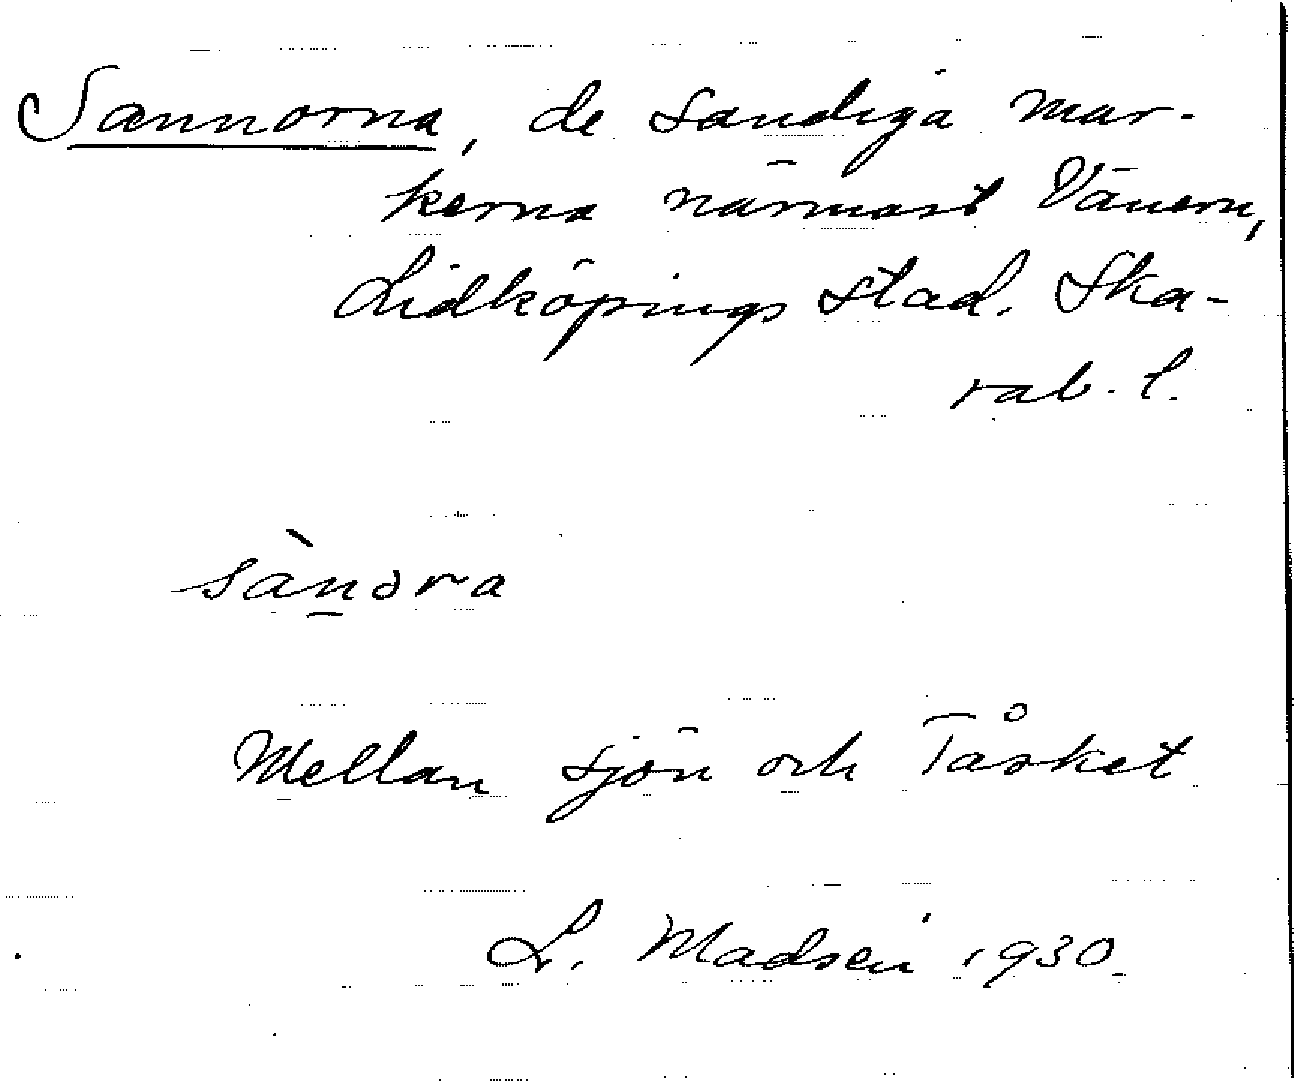 Sannorna, de sandiga mar-
kerna närmast Vänern,
Lidköpings stad. Ska-
rab. l.
sàn̲ɔra
Mellan sjön och Tåsket
L. Madsen 1930.